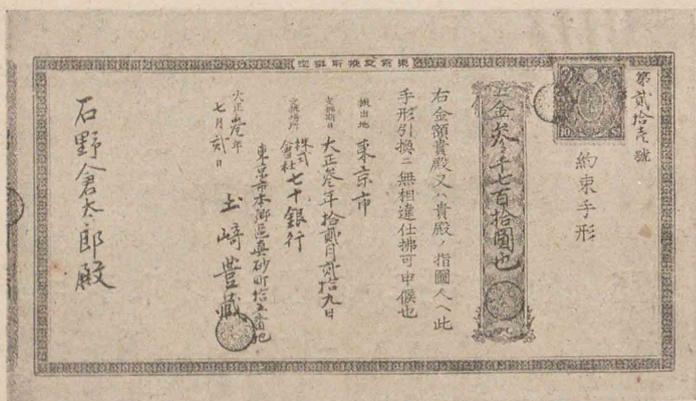 東京交換所組合
第貳拾壱號
約束手形
一金參千七百拾圓也
右金額貴殿又ハ貴殿ノ指圖人ヘ此
手形引換ニ無相違仕拂可申候也
振出地 東京市
支拂期日 大正參年拾貳月貳拾九日
支拂場所 株式會社七十銀行
東京市本郷區真砂町拾五番地
大正參年
七月貳日
土崎豊藏
石野倉太郎殿